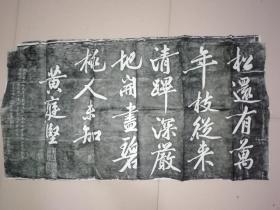 松還有萬
年枝從來
清蹕深嚴
地開盡碧
桃人未知
黃庭堅